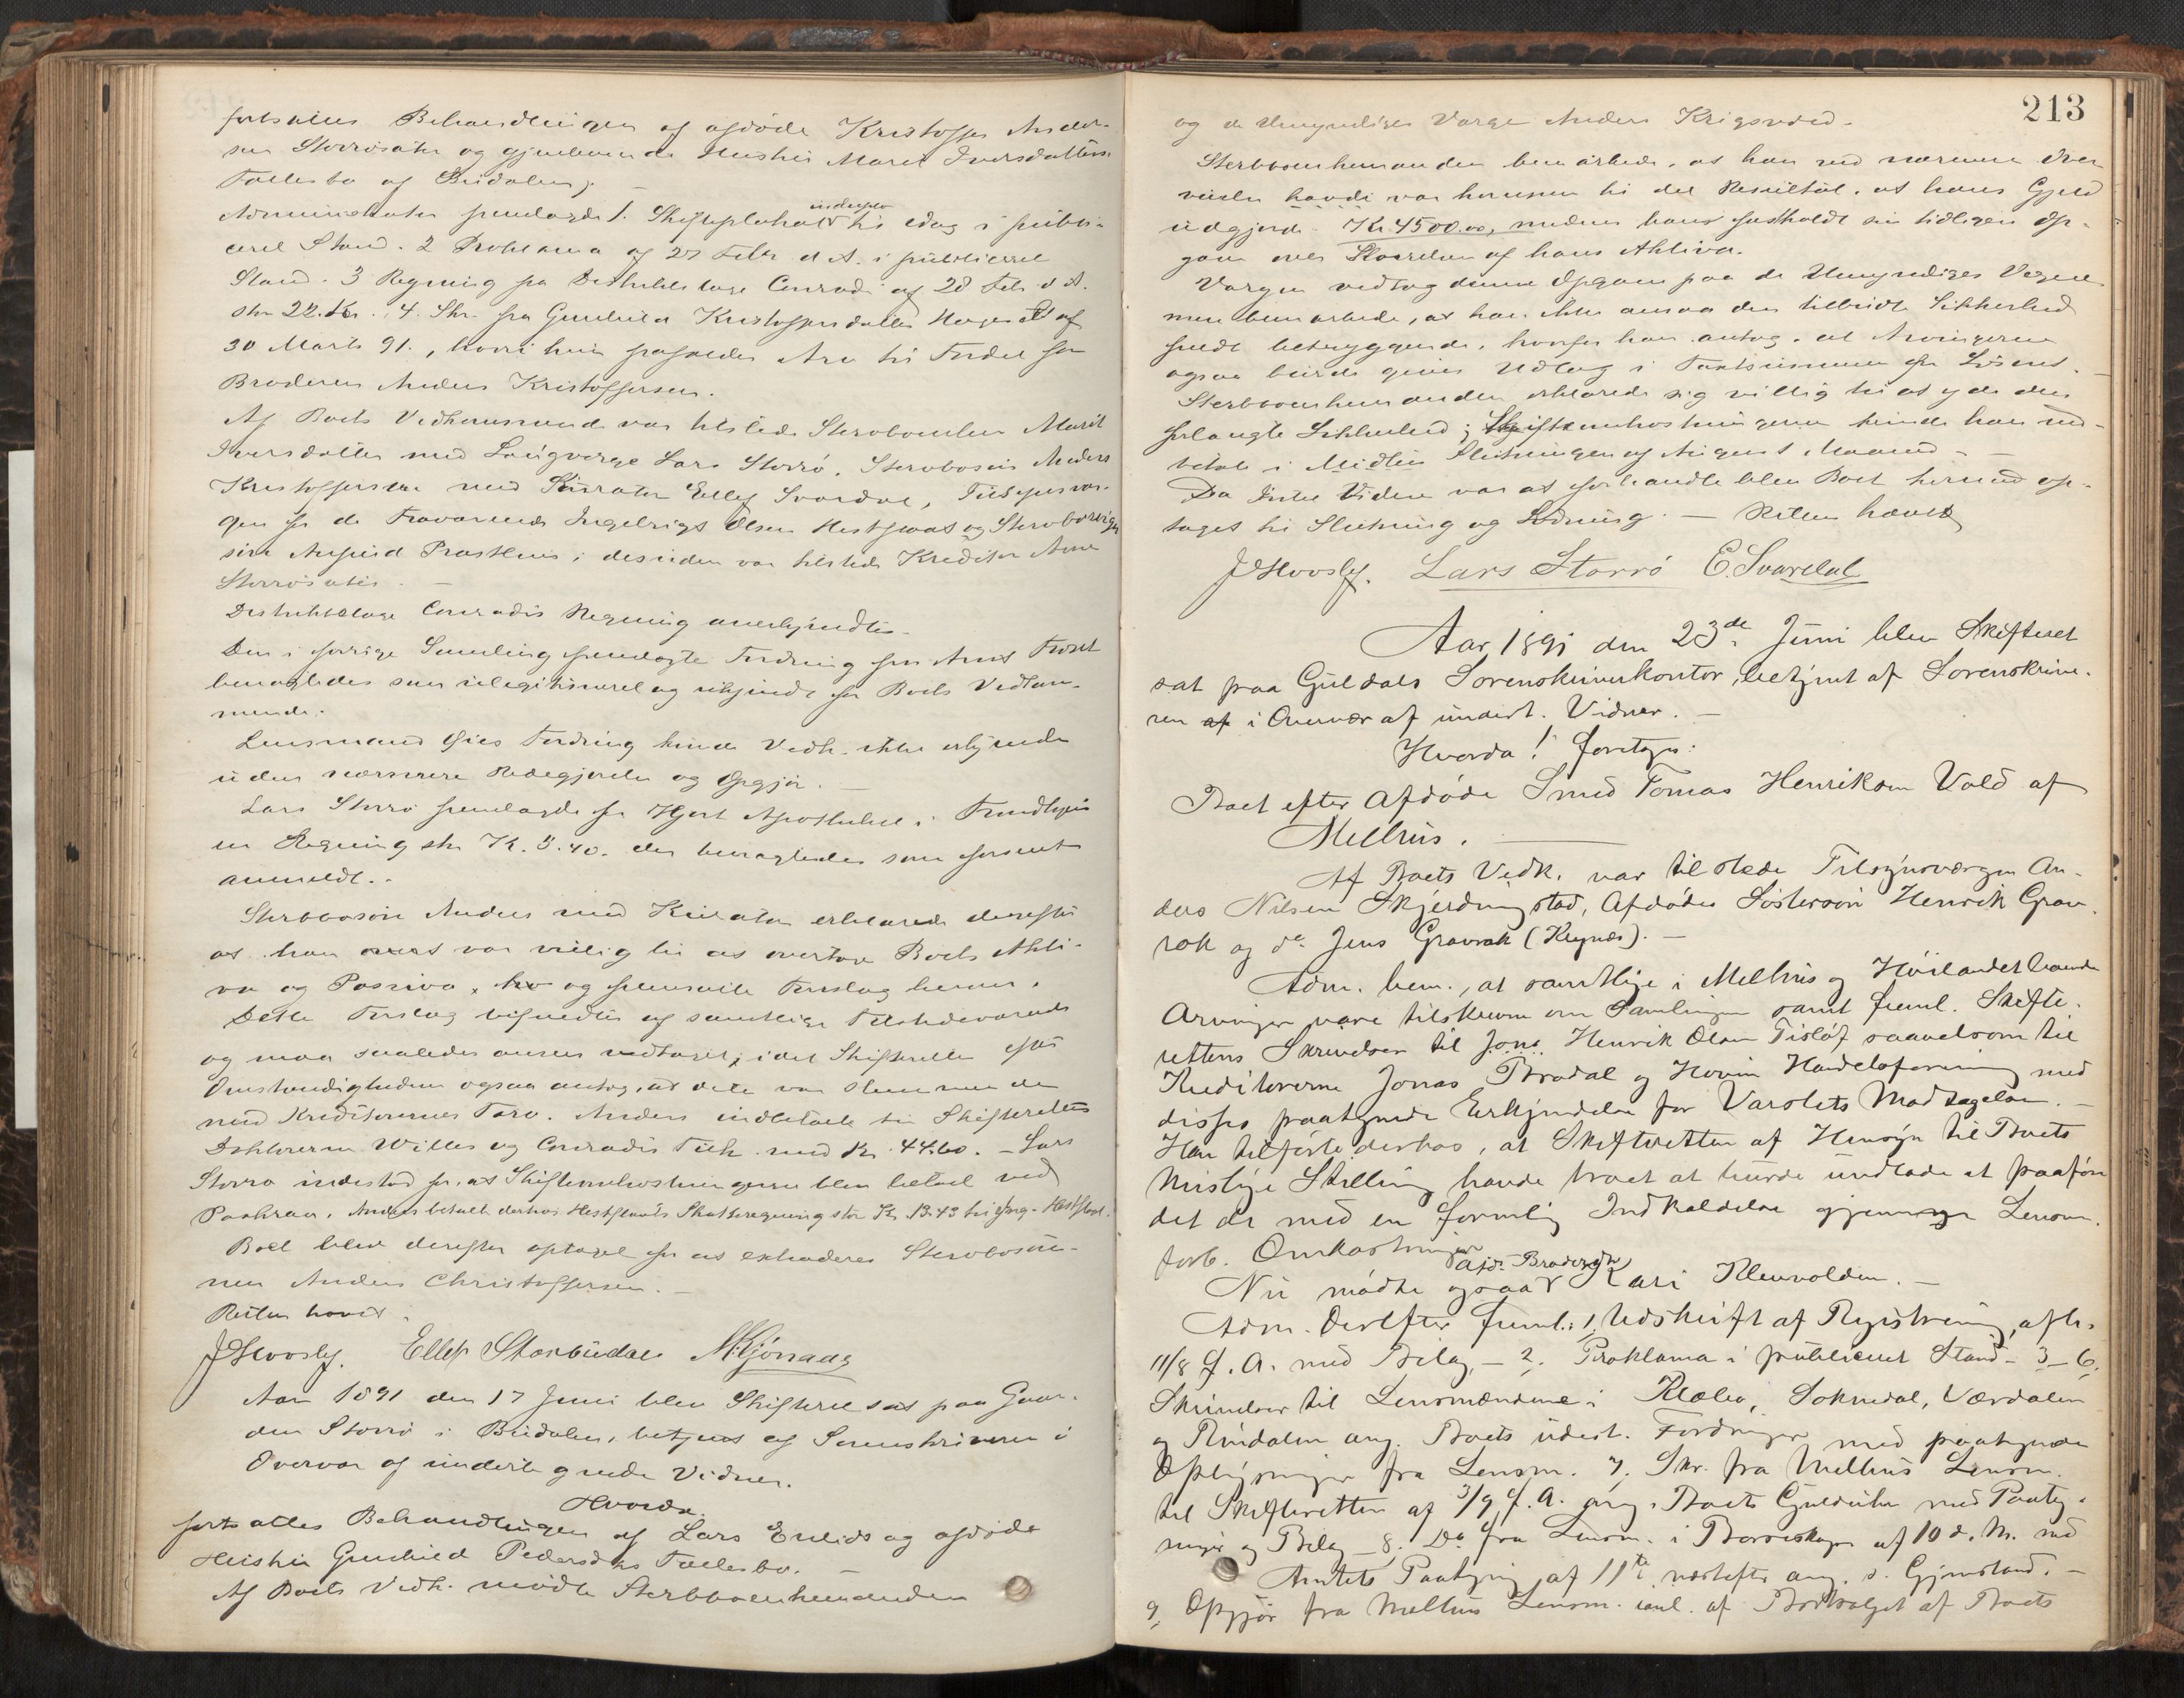 fortsattes Behandlingen af afdøde Kristoffer Ander-
sen Storrøsæter og gjenlevende Hustru Marit Iversdatters
Fællesbo af Budalen.
Administrator fremlagde 1. Skifteplakat indkaldt til idag i publi-
ceret Stand. 2 Proklama af 27 Febr d. A. i publiceret
Stand. 3 Regning fra Distriktslæge Conradi af 28 Feb d. A.
stor 22. Kr. 4. Skr. fra Gunhild Kristoffersdatter Hagen af
30 Marts 91., hvori hun frafalder Arv til Fordel for
Broderen Anders Kristoffersen.
Af Boets Vedkommende var tilstede Sterboenken Marit
Iversdatter med Laugværge Lars Storrø. Sterbosøn Anders
Kristoffersen med Kurator Ellef Svardal, Tilsynsvær-
gen for de Fraværende Ingebrigt Olsen Hestflaat og Sterbosviger-
søn Prasthus; desuden var tilstede Kreditor Arne
Storrøsæter. —
Distriktslæge Conradis Regning anerkjendtes.
Den i forrige Samling fremlagte Fordring fra Arnt Troset
benægtedes som ulegitimeret og ukjendt for Boets Vedkom-
mende.
Lensmand Fordring kunde Vedk. ikke erkjende
uden nærmere Redegjørelse og Opgjør. —
Lars Storrø fremlagde fra Hjort Apotheker i Trondhjem
en Regning stor K. 3.40. der benægtedes som forsent
anmeldt.
Sterbosøn Anders med Kurator erklærede derefter
at han var villig til at overtage Boets Akti-
va og Passiva, og fremsatte Forslag herom.
Dette Forslag bifaldtes af samtlige Tilstedeværende
og maa saaledes ansees vedtaget, idet Skifteretten efter
Omstændighederne ogsaa antog, at dette var stemmende
med Kreditorernes Tarv. Anders indbetalte til Skifteretten
Doktorerne Willes og Conradis Tilk. med Kr. 44.60. — Lars
Storrø indestod for, at Skifteomkostningerne blev betalt ved
Paakrav. Anders betalte derhos Hestflaats Skatteregning stor Kr. 13.43 til Ingr. Hestflaat.
Boet blev derefter optaget for at extraderes Sterbosøn-
nen Anders Christoffersen. —
Retten hævet.
JHvoslef. Ellef Storbudal M.Gjønaas
Aar 1891 den 17 Juni blev Skifteret sat paa Gaar-
den Storrø i Budalen, betjent af Sorenskriveren i
Overvær af undertegnede Vidner.
Hvorda.
fortsattes Behandlingen af Lars og afdøde
Hustru Gunhild Pedersdtrs Fællesbo. —
Af Boets Vedk. mødte Sterbboenkemanden
213
og de Umyndiges Værge Anders Krigsvold.
Sterbboenkemanden bemærkede, at han ved nærmere Over-
veielse havde var kommen til det Resultat, at hans Gjeld
udgjorde Kr. 4500.00, medens han fastholdt sin tidligere Op-
gave over Størrelsen af hans Aktiva.
Værgen vedtog denne Opgave paa de Umyndiges Vegne
men bemærkede, at han ikke ansaa den tilbudte Sikkerhed
fuldt betryggende, hvorfor han antog, at Arvingerne
ogsaa burde gives Udlag i Taxtsummen for Løsøret.
Sterbboenkemanden erklærede sig villig til at yde den
forlangte Sikkerhed; Skifteomkostningerne kunde han ind-
betale i Midten Slutningen af August Maaned. —
Da Intet Videre var at forhandle blev Boet hermed op-
taget til Slutning og Lodning. — Retten hævet
JHvoslef. Lars Storrø E. Svardal
Aar 1891 den 23de Juni blev Skifteret
sat paa Guldals Sorenskriverkontor, betjent af Sorenskrive-
ren af i Overvær af undert. Vidner. —
Hvorda! foretages:
Boet efter Afdøde Smed Tomas Henriksen Vold af
Melhus. —
Af Boets Vedk. var tilstede Tilsynsværgen An-
ders Nilsen Skjerdingstad, Afdødes Søstersøn Henrik Grav-
rok og do Jens Gravrak (Kregnes). —
Adm. bem., at samtlige i Melhus og Høilandet boende
Arvinger vare tilskrevne om Samlingen samt freml. Skifte-
rettens Skrivelser til Jons Henrik Olsen Tisløf saavelsom til
Kreditorerne Jonas Brodal og Hovin Handelsforening med
disses paategnede Erkjendelse for Varslets Modtagelse. —
Han tilførte derhos, at Skifteretten af Hensyn til Boets
mislige Stilling havde troet at burde undlade at paaføre
det de med en formelig Indkaldelse gjennem Lensm.
forb. Omkostninger
Nu mødte ogsaa Afd. Broderdtr Kari Klevvolden. —
Adm. derefter freml.: 1, Udskrift af Registrering, afh.
11/8 f. A. med Bilag — 2. Proklama i publiceret Stand — 3–6.
Skrivelser til Lensmændene i Klæbo, Soknedal, Værdalen
og Rindalen ang. Boets udest. Fordringer med paategnede
Oplysninger fra Lensm. 7. Skr. fra Melhus Lensm.
til Skifteretten af 3/9 f. A. ang. Boets Gulduhr med Paateg-
ninger og Bilag — 8. Do fra Lensm. i Børseskogn af 10 d. M. med
Amtets Paategn. af 11te næstefter ang. s. Gjenstand. —
9, Opgjør fra Melhus Lensm. af Bortsalget af Boets